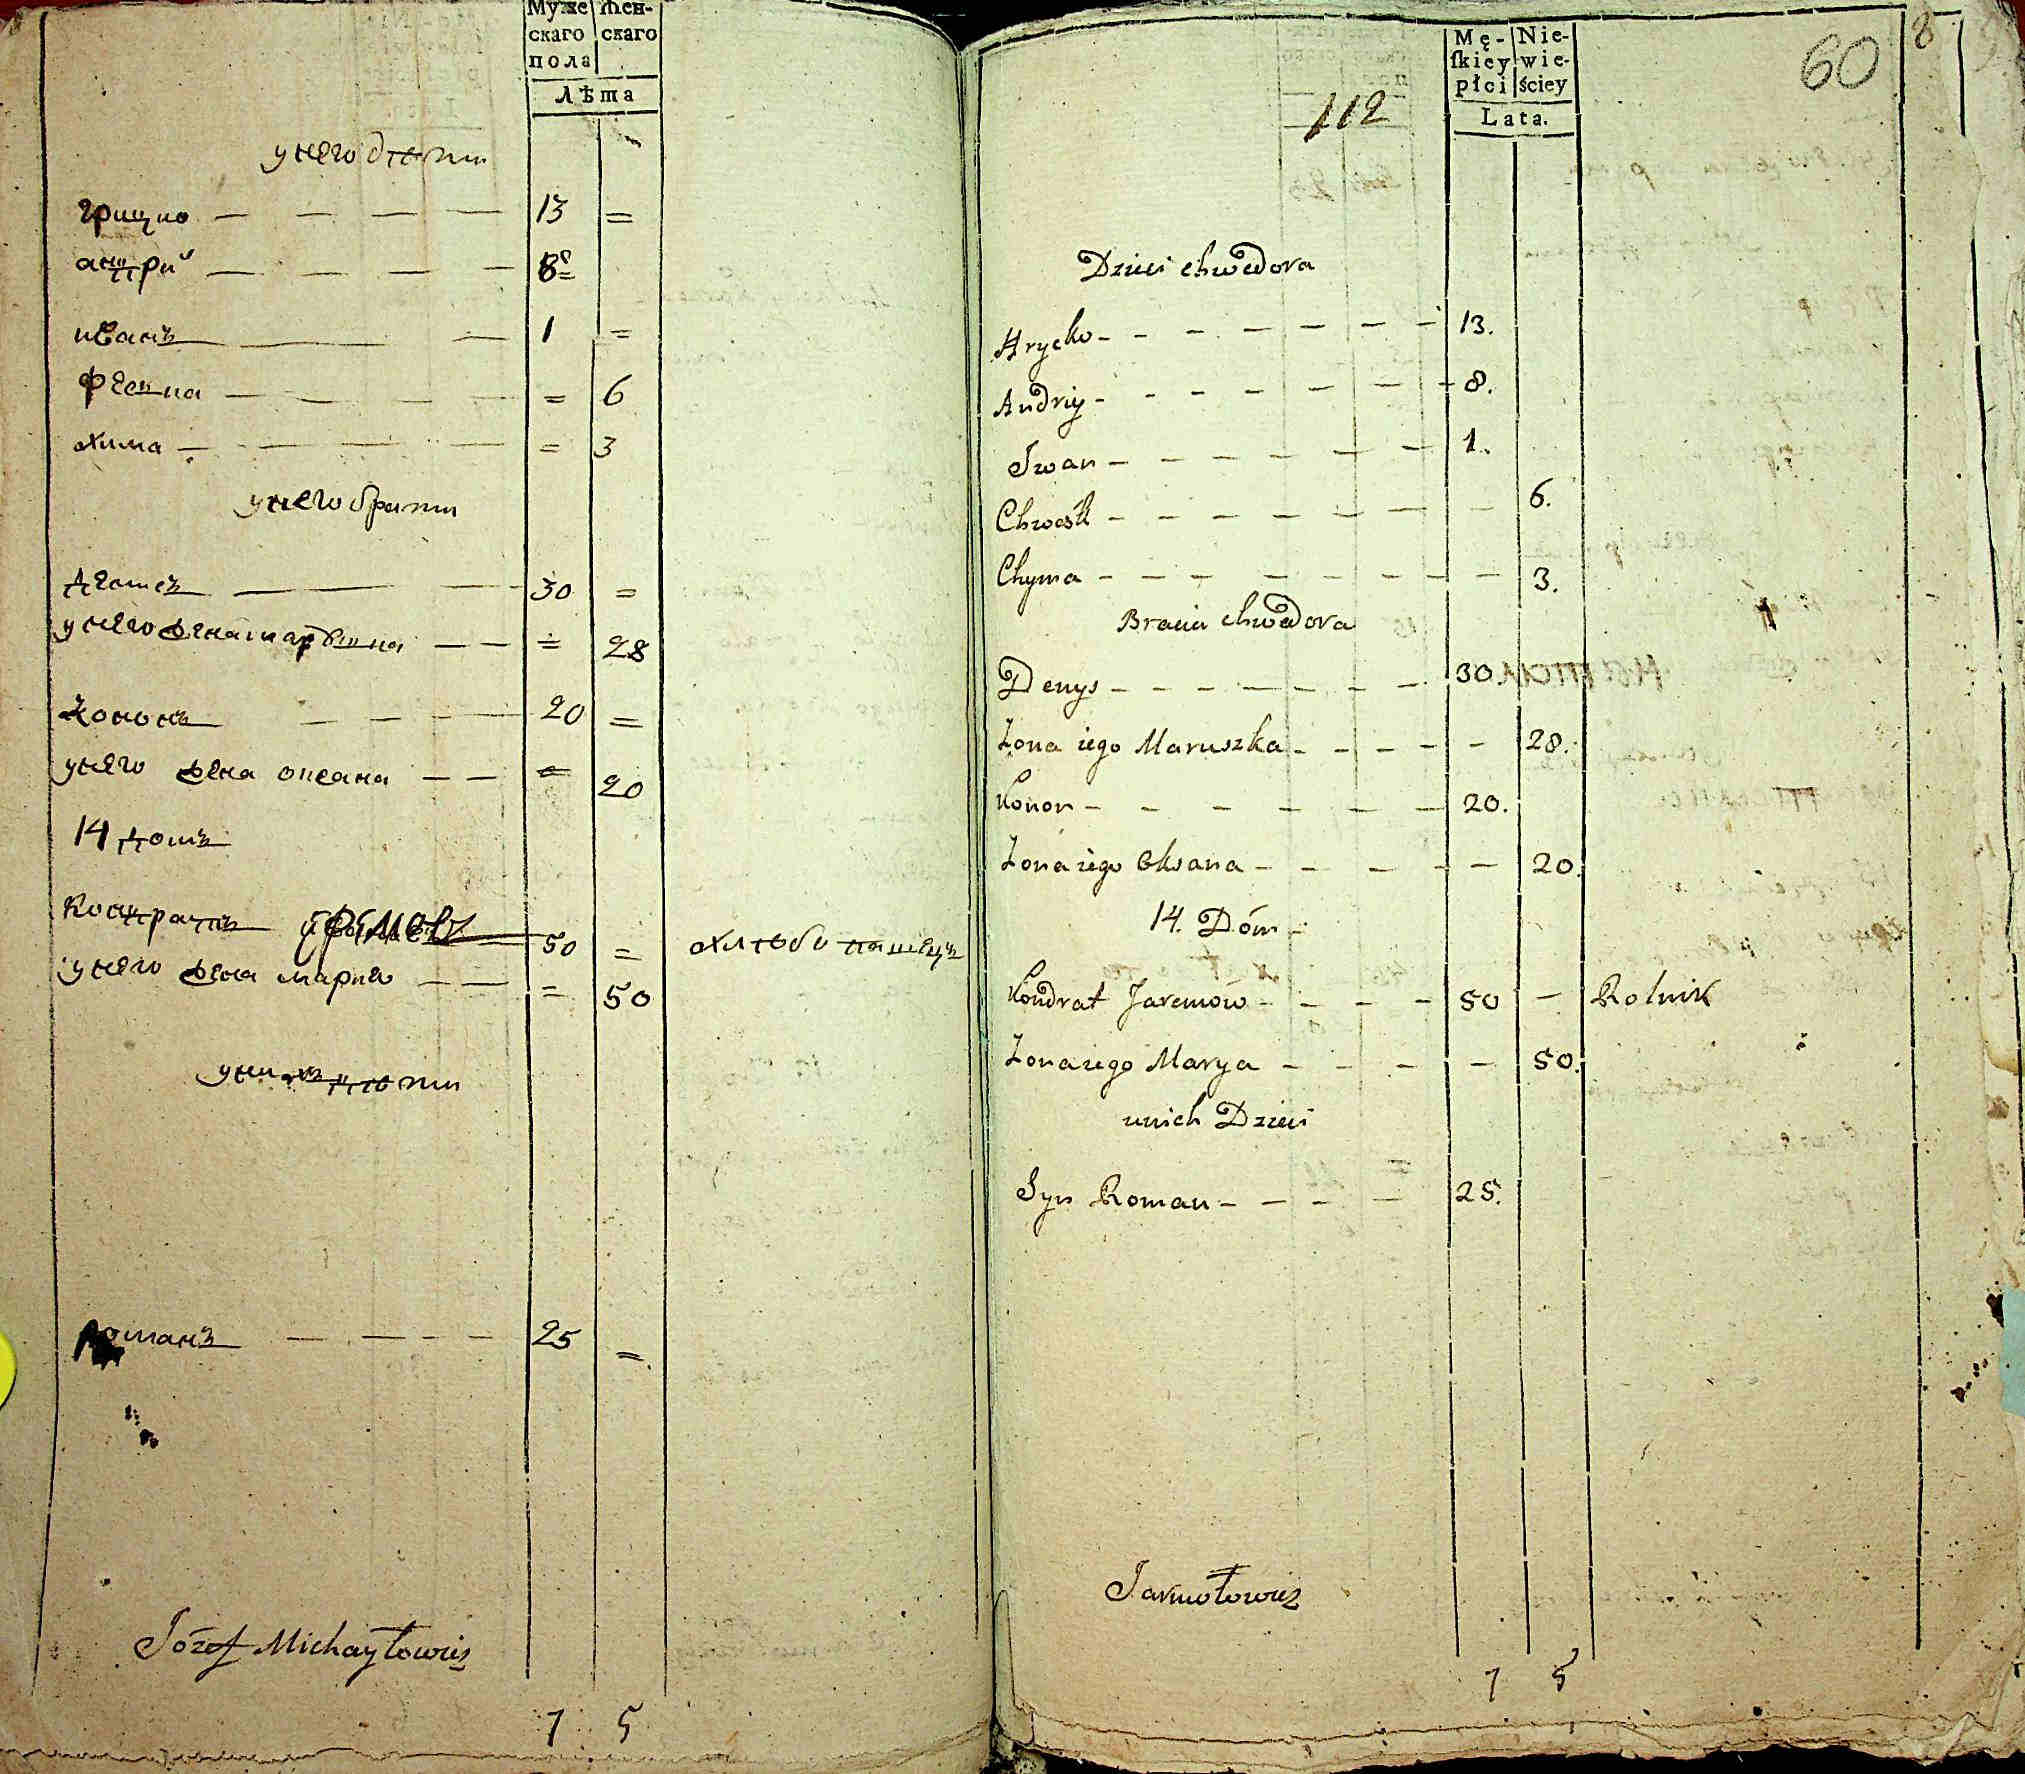 Муже Жен-
скаго скаго
пола
Лѣта
у него дѣти
грицко — — — — 13 =
андрій — — — — 8 =
иванъ — — — 1 =
феска — — — — = 6
хима — — — — = 3
у него брати
денисъ — — — 30 =
у него жена марушка — — = 28
кононъ — — — — 20 =
у него жена оксана — — = 20
14 домъ
кондратъ яремовъ 50 = хлѣбопашецъ
у него жена мария — — = 50
у нихъ дѣти
романъ — — — — 25 =
Józef Michayłowicz
7 5
8
60
Mę- Nie-
ſkiey wie-
płci ściey
Lata.
112
Dzieci Chwedora
Hrycko - - - - - - - 13.
Andriy - - - - - - - 8.
Iwan - - - - - - - 1.
Chwesk - - - - - - - - 6.
Chyma - - - - - - - - 3.
Bracia Chwedora
Denys - - - - - - - 30.
Żona iego Maruszka - - - - - 28.
Konon - - - - - - - 20.
Żona iego Oksana - - - - - 20.
14. Dóm -
Kondrat Jaremow - - - - 50 — Rolnik
Żona iego Marya - - - - - 50.
u nich Dzieci
Syn Roman - - - - 25.
Jarmołowicz
7 5